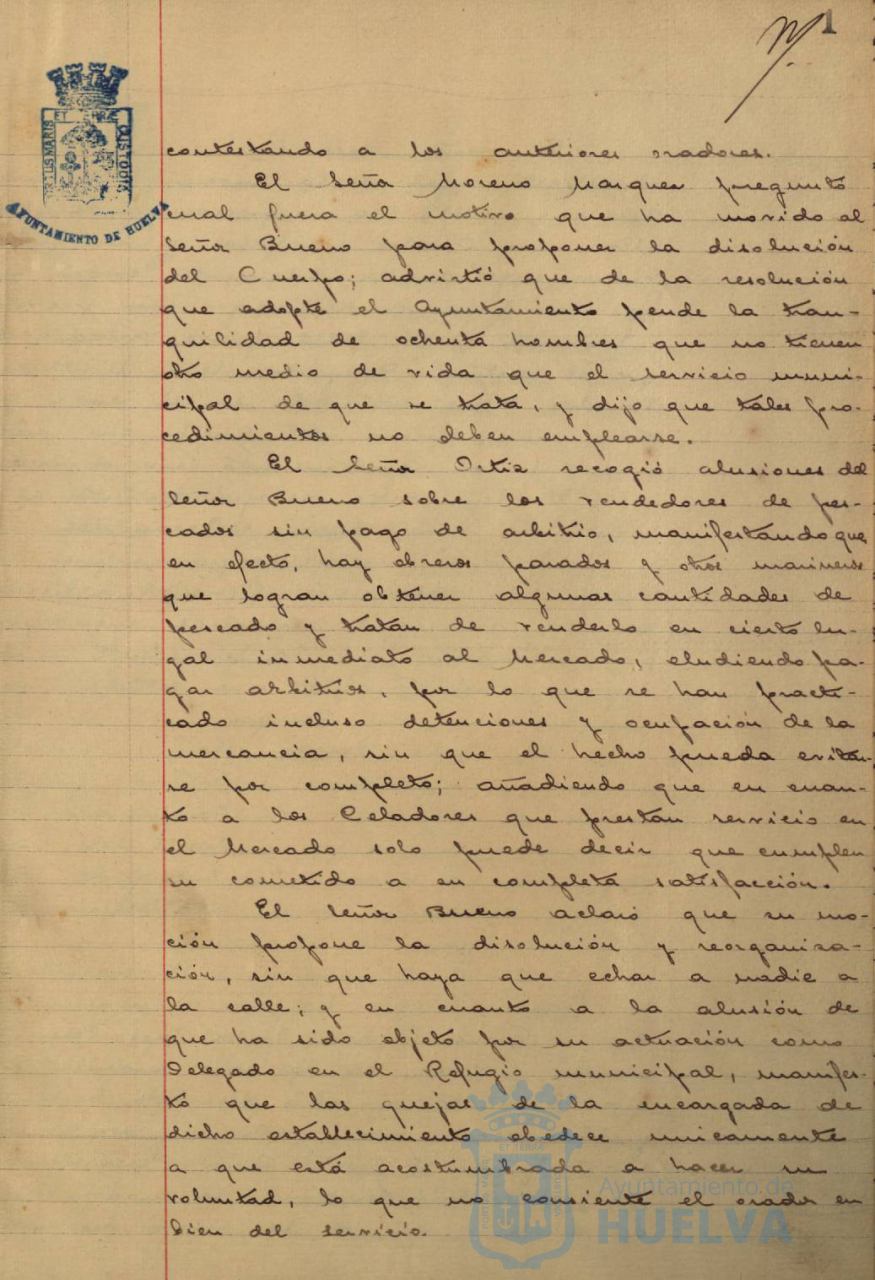 1
contestando a los anteriores oradores.
El Señor Moreno Marquez preguntó
cual fuera el motivo que ha movido al
Señor Bueno para proponer la disolución
del Cuerpo; advirtió que de la resolución
que adopte el Ayuntamiento pende la tran-
quilidad de ochenta hombres que no tienen
otro medio de vida que el servicio muni-
cipal de que se trata, y dijo que tales pro-
cedimientos no deben emplearse.
El Señor Ortiz recogió alusiones del
Señor Bueno sobre los vendedores de pes-
cados sin pago de arbitrio, manifestando que
en efecto, hay obreros parados y otros marineros
que logran obtener algunas cantidades de
pescado y tratan de venderlo en cierto lu-
gal inmediato al Mercado, eludiendo pa-
gar arbitrios, por lo que se han practi-
cado incluso detenciones y ocupación de la
mercancia, sin que el hecho pueda evitar-
se por completo; añadiendo que en cuan-
to a los Celadores que prestan servicio en
el Mercado solo puede decir que cumplen
su cometido a su completa satisfacción.
El Señor Bueno aclaró que su mo-
ción propone la disolución y reorganiza-
ción, sin que haya que echar a nadie a
la calle; y en cuanto a la alusión de
que ha sido objeto por su actuación como
Delegado en el Refugio municipal, manifes-
tó que las quejas de la encargada de
dicho establecimiento obedece unicamente
a que está acostumbrada a hacer su
voluntad, lo que no consiente el orador en
bien del servicio.
AYUNTAMIENTO DE HUELVA
Ayuntamiento de
HUELVA